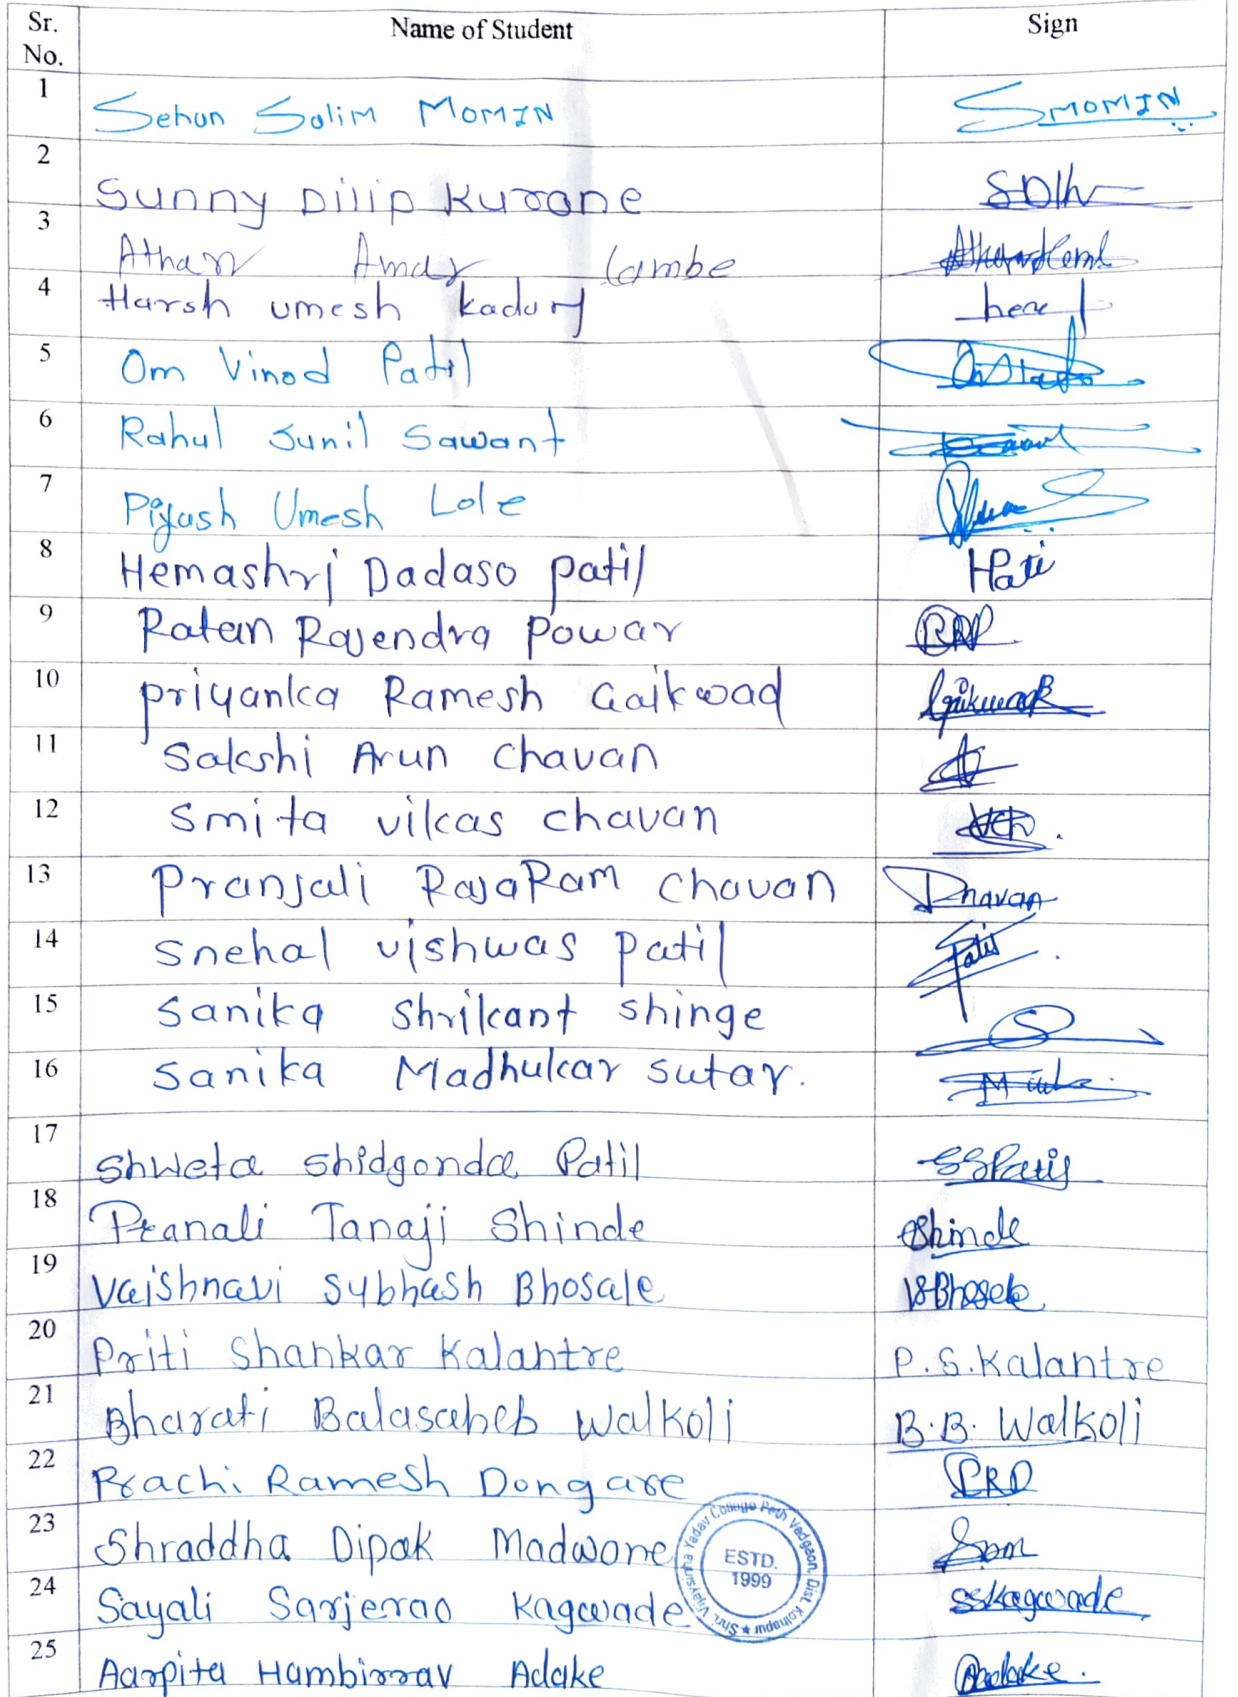 Sr. No. Name of Student Sign
1 Sehan Salim MOMIN SMOMIN
2 Sunny Dilip Kurane
3 Atharv Amar Lambe
4 Harsh umesh
5 Om Vinod Patil
6 Rahul Sunil Sawant
7 Piyush Umesh Lole
8 Hemashri Dadaso patil HPati
9 Ratan Rajendra Powar RRP
10 priyanka Ramesh Gaikwad
11 Sakshi Arun chavan
12 Smita vilkas chavan
13 Pranjali RajaRam chavan
14 Snehal vishwas patil Patil
15 Sanika Shrikant Shinge
16 Sanika Madhukar Sutar.
17 Shweta Shidgonda Patil SSPatil
18 Pranali Tanaji Shinde Shinde
19 Vaishnavi Subhash Bhosale VSBhosale
20 Priti Shankar Kalantre P.S.Kalantre
21 Bharati Balasaheb Walkoli B.B. Walkoli
22 Prachi Ramesh Dongare PRD
23 Shraddha Dipak Madwane
24 Sayali Sarjerao Kagwade SSKagwade
25 Aarpita Hambirrav Adake Aadake.
Shri. Vijaysinha Yadav College Peth Vadgaon, Dist. Kolhapur ★
ESTD.
1999